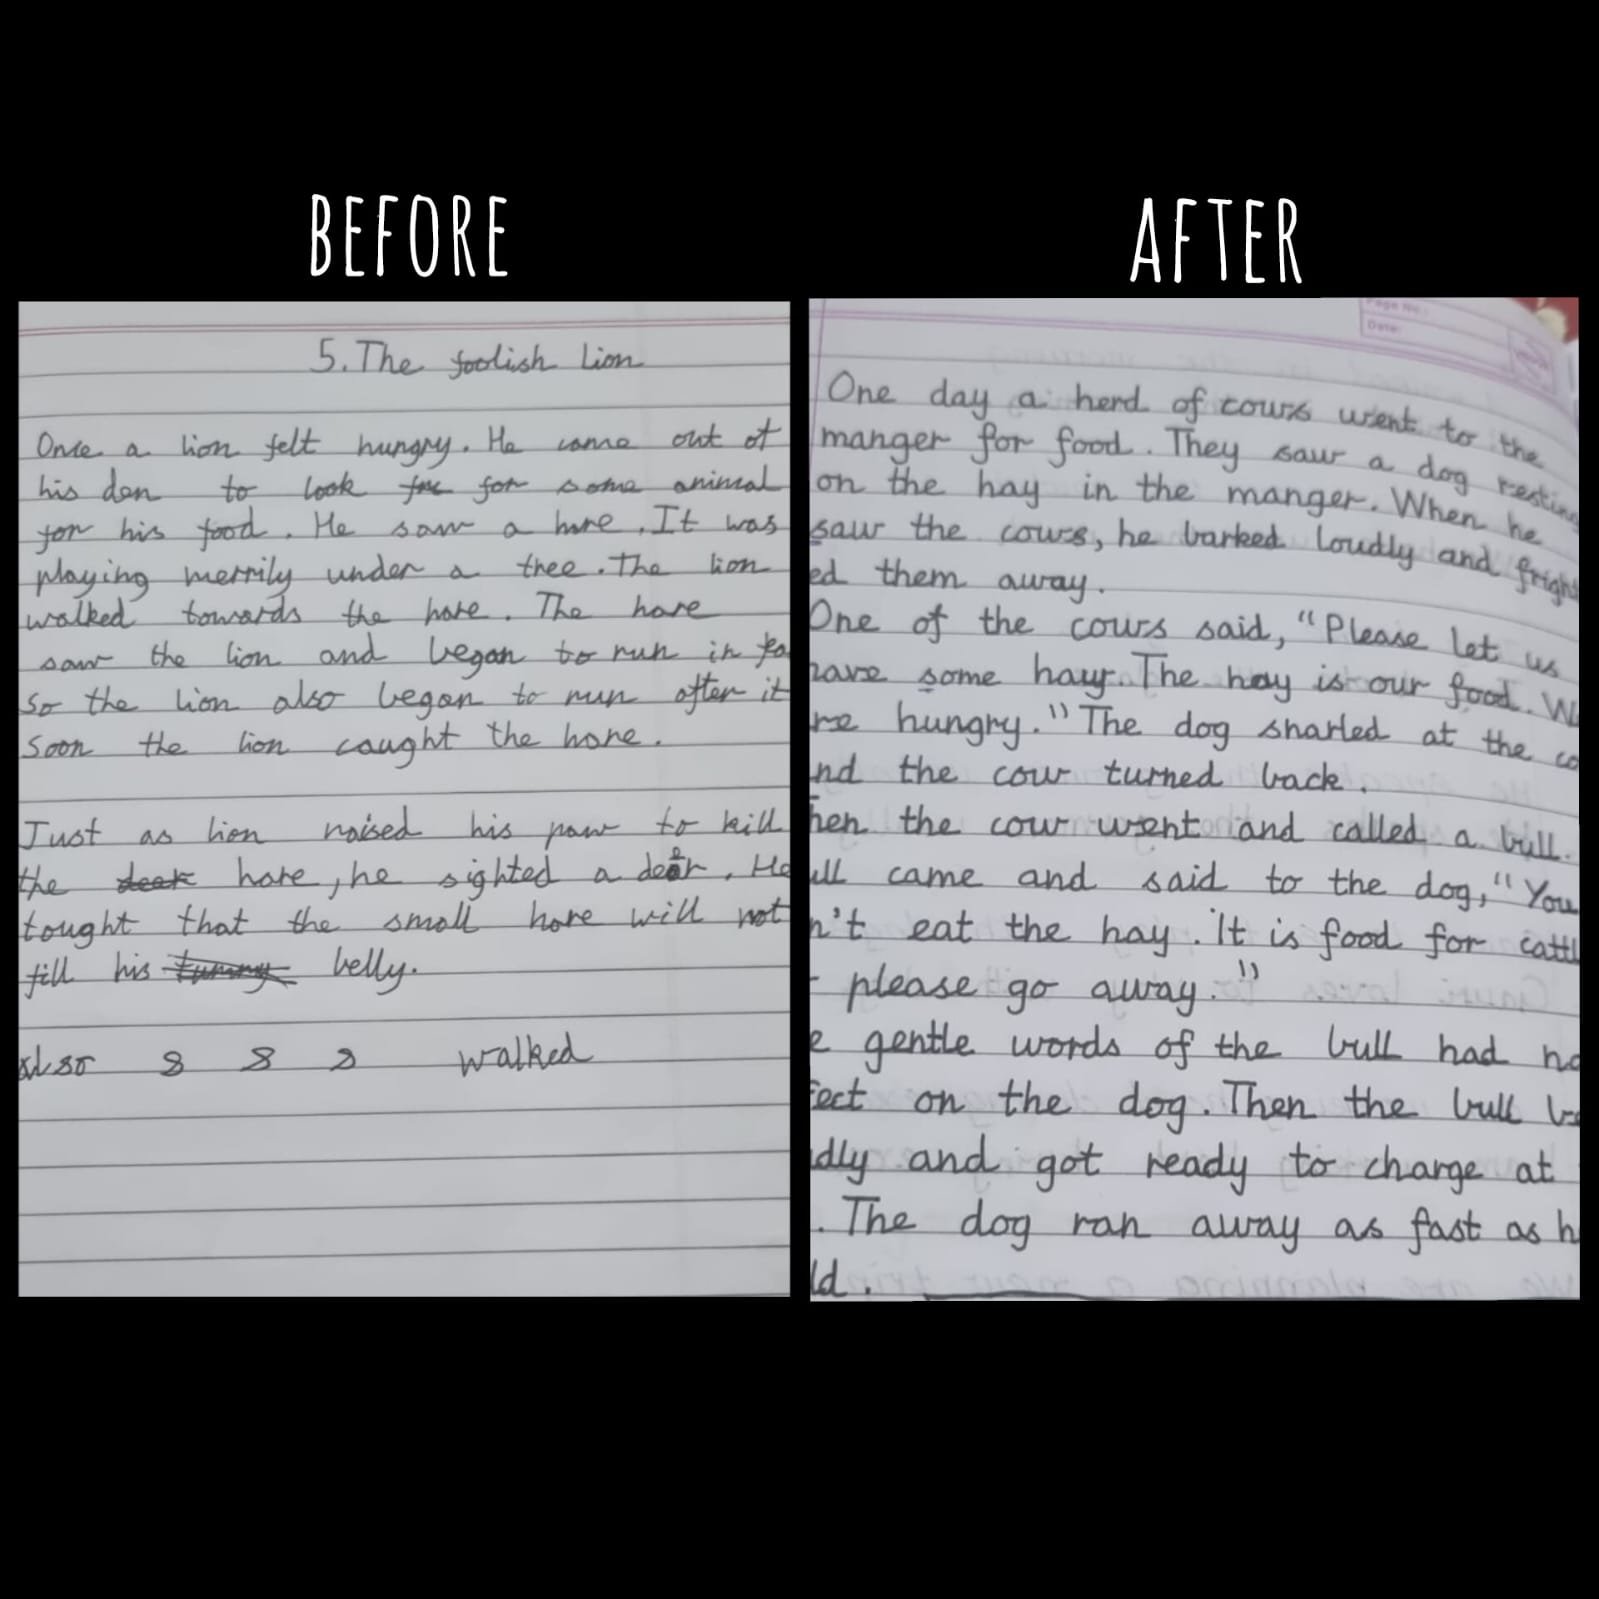 BEFORE
5. The foolish Lion
Once a lion felt hungry. He came out of
his den to look for for some animal
for his food. He saw a hare. It was
playing merrily under a tree. The lion
walked towards the hare. The hare
saw the lion and began to run in
So the lion also began to run after it
Soon the lion caught the hare.
Just as lion raised his paw to kill
the deer hare, he sighted a deer. He
tought that the small hare will not
fill his tummy belly.
also s s s walked
AFTER
Page No.:
Date:
One day a herd of cows went to the
manger for food. They saw a dog resting
on the hay in the manger. When he
saw the cows, he barked loudly and fright
ed them away.
One of the cows said, "Please let us
have some hay. The hay is our food. We
re hungry." The dog snarled at the co
nd the cow turned back.
hen the cow went and called a bull.
ull came and said to the dog, "You
n't eat the hay. It is food for cattl
please go away."
e gentle words of the bull had no
fect on the dog. Then the bull be
dly and got ready to charge at
. The dog ran away as fast as h
ld.